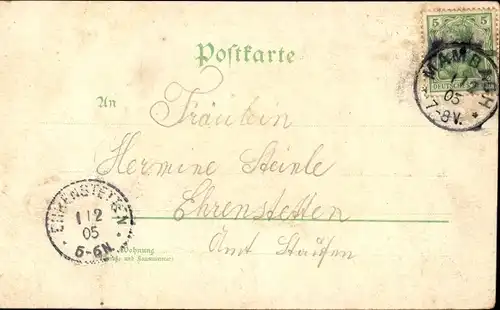 5 5
Postkarte
DEUTSCHES
MAMBACH
1 12
05
7-8V.
An
Fräulein
Hermine Steinle
Ehrenstetten
Amt Staufen
EHRENSTETTEN
1 12
05
5-6N.
Wohnung
(Straße und Hausnummer)